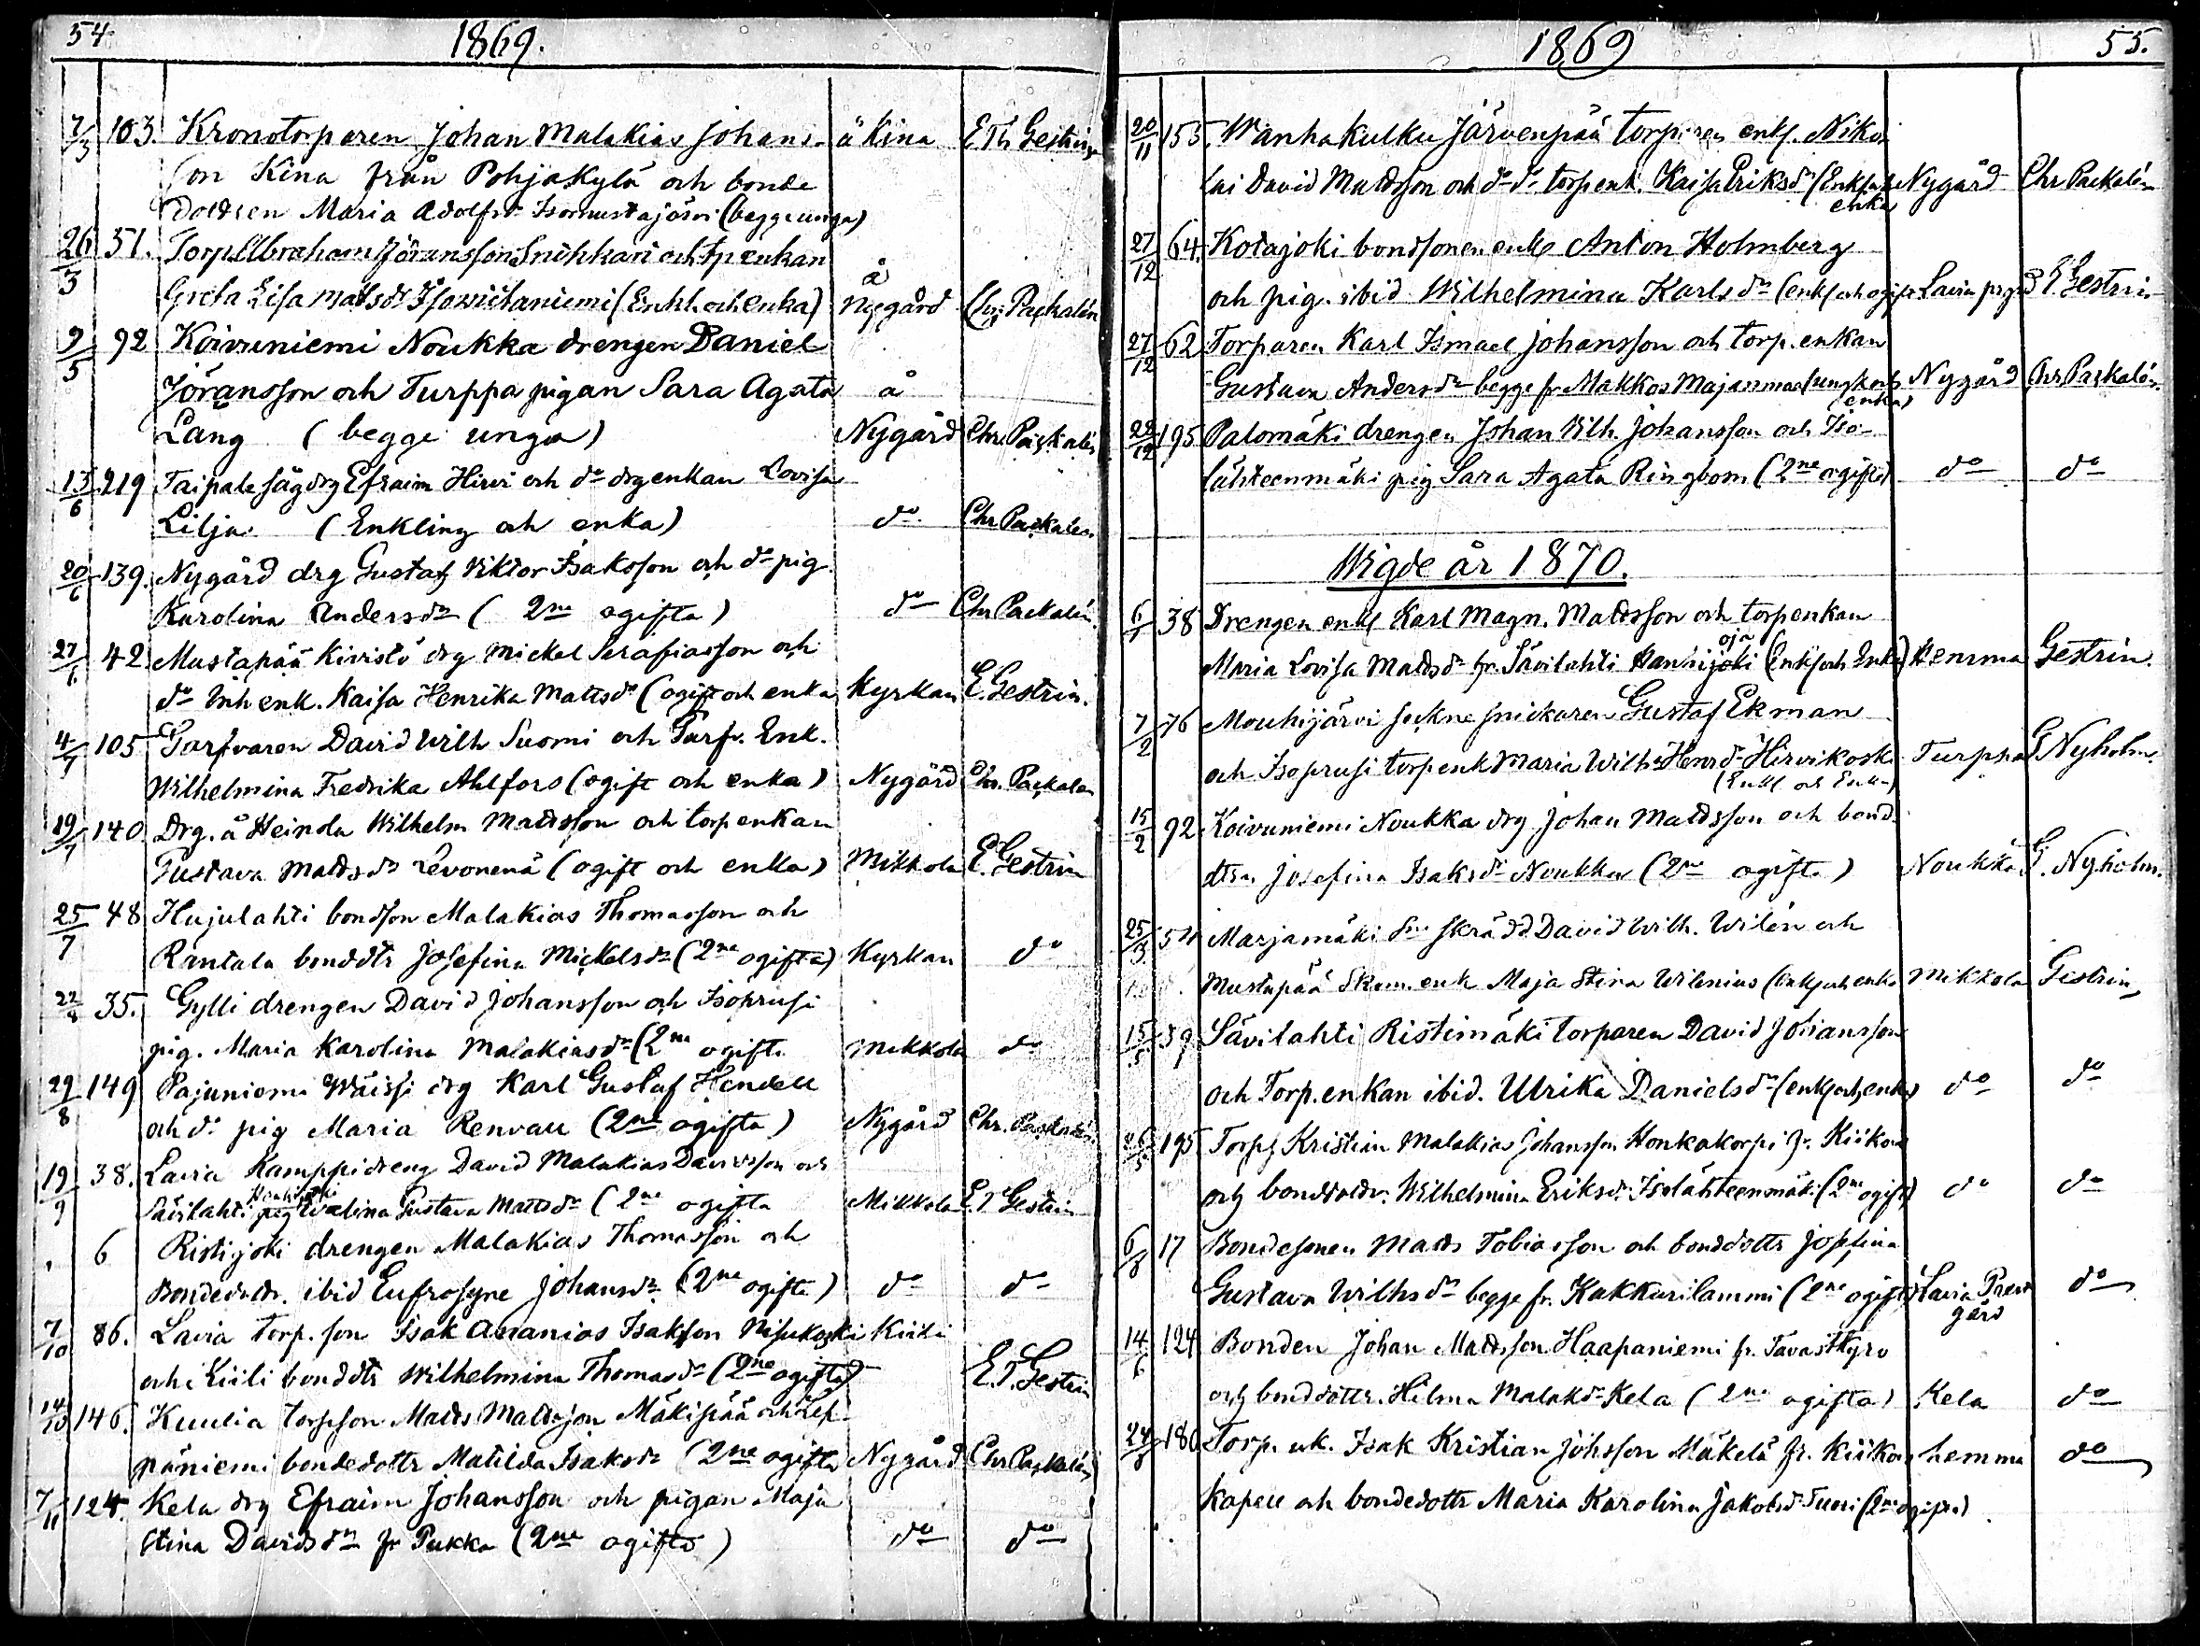 54.
1869.
7/3 103. Kronotorparen Johan Malakias Johans- å Kina E Th Gestrin
son Kina från Pohjakylä och bonde
dottren Maria Adolfsdr Isomustajärvi (begge unga)
26/3 51. Torp Abraham Jöransson Snikkari och tp enkan å
Greta Lisa Matsdr (Enkl. och enka) Nygård Chr Packalén
9/5 92 Koivuniemi Noukka drengen Daniel
Jöransson och Turppa pigan Sara Agata å
Lång (begge unga) Nygård Chr. Packalén
13/6 219 Taipale sågdrg Efraim Hirvi och do drgenkan Lovisa
Lilja (Enkling och enka) do Chr Packalén
20/6 139. Nygård drg Gustaf Viktor Isaksson och do pig.
Karolina Andersdr (2ne ogifta) do Chr Packalén.
27/6 42 Mustapää Kivistö drg Mickel Serafiasson och
do Inh enk. Kaisa Henrika Mattsdr (ogift och enka Kyrkan E. Gestrin.
4/7 105 Garfvaren David Wilh Suomi och Garfv. Enk.
Wilhelmina Fredrika Ahlfors (ogift och enka) Nygård Chr. Packalén
19/7 140 Drg. å Heinola Wilhelm Mattsson och torpenkan
Gustava Mattsdr Levonenä (ogift och enka) Mikkola E. Gestrin
25/7 48 Hujulahti bondson Malakias Thomasson och
Rantala bonddtr Josefina Mickelsdr (2ne ogifta) Kyrkan do
22/8 35. Gylli drengen David Johansson och Isoprusi
pig. Maria Karolina Malakiasdr (2ne ogifta Mikkola do
29/8 149 Pajuniemi Wäissi drg Karl Gustaf Hendell
och do pig Maria Renvall (2ne ogifta) Nygård Chr. Packalén
19/9 38. Lavia Kamppi dreng David Malakias Davidsson och
Sävilahti pig Evelina Gustava Mattsdr (2ne ogifta Mikkola E. T Gestrin
6 Ristijoki drengen Malakias Thomasson och
Bondedottr. ibid Eufrosyne Johansdr (2ne ogifta) do do
7/10 86. Lavia torp. son Isak Ananias Isaksson Nisukoski Kiili
och Kiili bonddtr Wilhelmina Thomasdr (2ne ogifta) E. T. Gestrin
14/10 146. Kuulia torpson Matts Mattsson Mäkipää och Lep-
päniemi bondedottr Matilda Isaksdr (2ne ogifta Nygård Chr Packalén
7/11 124. Kela drg Efraim Johansson och pigan Maja
Stina Davidsdr fr Pukka (2ne ogifta) do do
1869
55.
20/11 153. Wanhakulku Järvenpää torparen enkl. Niko-
lai David Mattsson och do do torpenk. Kaisa Eriksdr (Enkl. och enka Nygård Chr Packalén
27/12 64. Kotajoki bondsonen enkl Anton Holmberg
och pig. ibid Wilhelmina Karlsdr (enkl och ogift Lavia prgrd E. Gestrin
27/12 62 Torparen Karl Ismael Johansson och torp. enkan
Gustava Andersdr begge fr Makkos Majanmaa (ungk och enka) Nygård Chr Packalén
28/12 195 Palomäki drengen Johan Wilh. Johansson och Iso-
lähteenmäki pig Sara Agata Ringbom (2ne ogifta) do do
Wigde år 1870.
6/1 38 Drengen enkl Karl Magn. Mattsson och torpenkan
Maria Lovisa Mattsdr fr. Sävilahti Hanhijoki oja (Enkl och Enka) Hemma Gestrin.
7/2 76 Mouhijärvi sockne snickaren Gustaf Ekman
och Isoprusi torpenk Maria Wilha Henrdr Hirvikoski (Enkl och Enka) Turppa G Nyholm.
15/2 92 Koivuniemi Noukka drg Johan Mattsson och bond
dttrn Josefina Isaksdr Noukka (2ne ogifta) Noukka G. Nyholm.
25/3 54 Marjamäki Sne skrädd David Wilh. Wilén och
Mustapää Skom. enk Maja Stina Wilenius (Enkl och enka Mikkola Gestrin,
15/5 39 Sävilahti Ristimäki torparen David Johansson
och Torp. enkan ibid. Ulrika Danielsdr (enkl och enka) do do
26/5 195 Torps Kristian Malakias Johansson Honkakorpi fr. Kiikois
och bonddottr. Wilhelmina Eriksdr Isolähteenmäki (2ne ogift) do do
6/6 17 Bondesonen Matts Tobiasson och bonddottr Josefina
Gustava Wilhsdr begge fr. Kakkurilammi (2ne ogifta) Lavia Prest gård do
14/6 124 Bonden Johan Mattsson Haapaniemi fr. Tavastkyro
och bonddottr. Hilma Malaksdr Kela (2ne ogifta) Kela do
24/6 180 Torp. uk. Isak Kristian Johsson Mäkelä fr. Kiikois hemma do
Kapell och bondedottr Maria Karolina Jakobsdr Tuori (2ne ogifta)